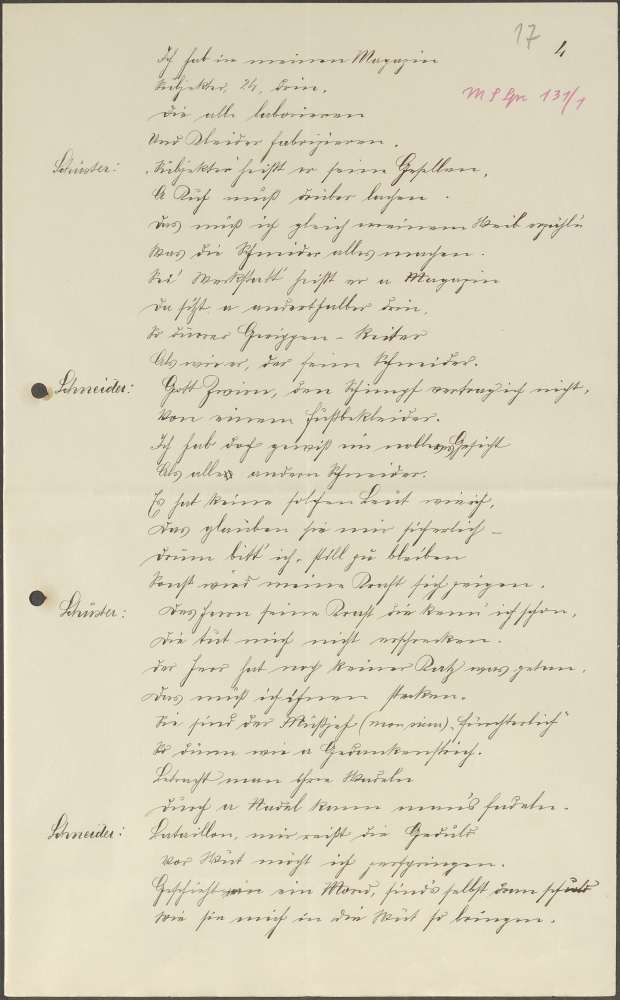 17
4
M S Gr 131/1
Ich hab in meinem Magazin
Subjekter, 24, drin.
Die alle laborieren
Und Kleider fabrizieren.
Schuster: Subjekter heißt er seine Gesellen,
A Kuh muß drüber lachen.
Das muß ich gleich meinem Weib erzähln
Was die Schneider alles machen.
Sei' Werkstatt heißt er a Magazin
Da sitzt a anderthalber drin,
So dürrer Gerippen-Reiter
Als wie er, der feine Schneider.
Schneider: Gott Zwirn, den Schimpf vertrag ich nicht,
Von einem Fußbekleider.
Ich hab doch gewiß ein nobleres Gesicht
Als alle andern Schneider.
Es hat keine solchen Leut wie ich,
Das glauben sie mir sicherlich –
Drum bitt' ich, still zu bleiben
Sonst wird meine Kraft sich zeigen.
Schuster: Des Herrn seine Kraft die kenn' ich schon,
Die tut mich nicht erschrecken.
Der Herr hat noch keiner Katz was getan,
Das muß ich ihnen stecken.
Sie sind der „fürchterlich"
So dünn wie a Gedankenstrich.
Betracht man ihre Wadeln
Durch a Nadel kann man's fadeln.
Schneider: Bataillon, mir reißt die Geduld
Vor Wut möcht ich zerspringen.
Geschieht ein Mord, sind's selbst dran schuld
Wie sie mich in die Wut so bringen.